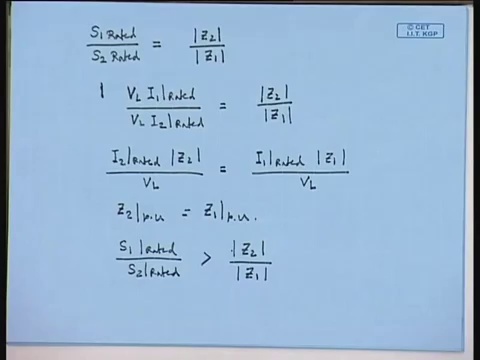 © CET
I.I.T. KGP
S1 Rated / S2 Rated = |Z2| / |Z1|
VL I1|Rated / VL I2|Rated = |Z2| / |Z1|
I2|Rated |Z2| / VL = I1|Rated |Z1| / VL
Z2|p.u = Z1|p.u.
S1|Rated / S2|Rated > |Z2| / |Z1|